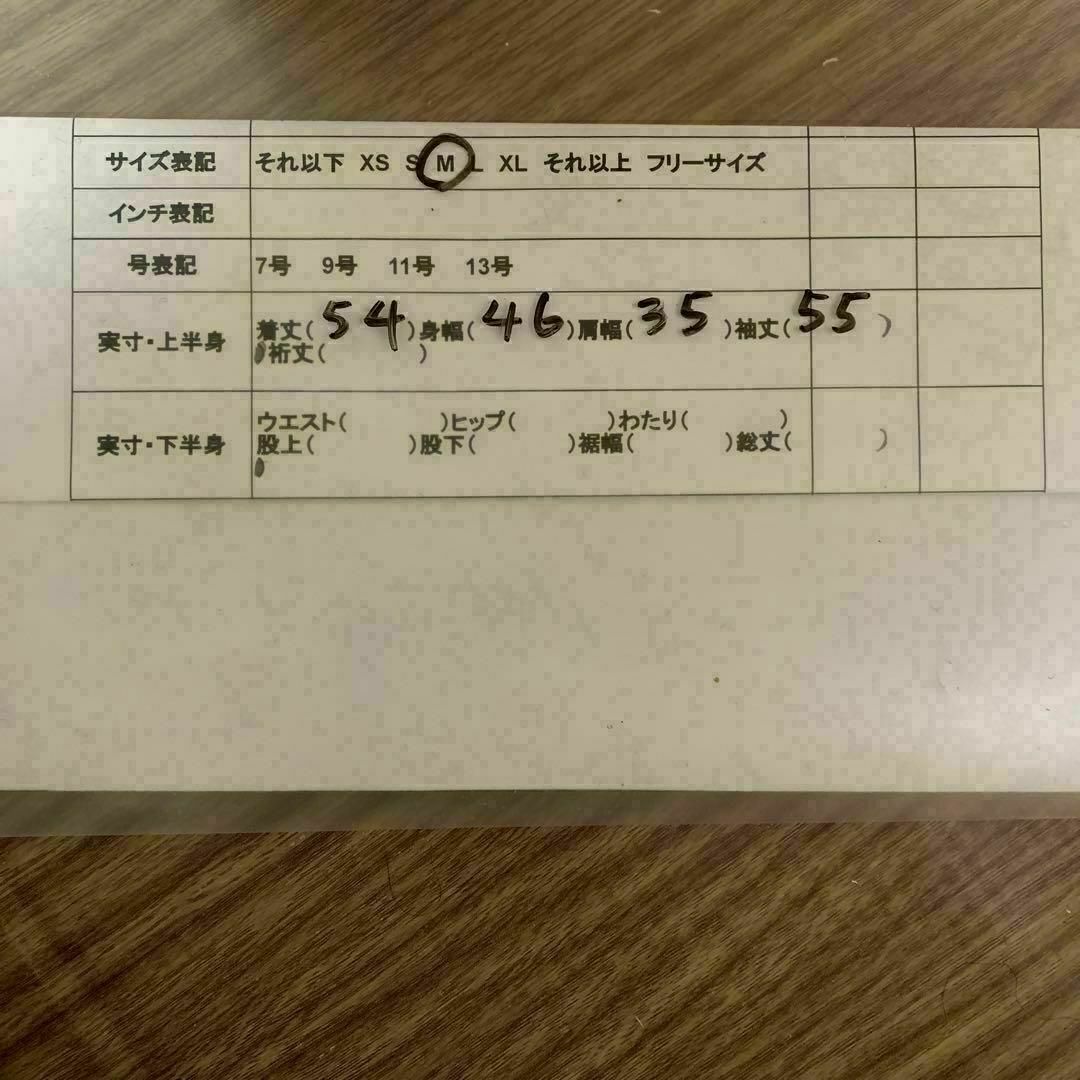 サイズ表記 それ以下 XS S M L XL それ以上 フリーサイズ
インチ表記
号表記 7号 9号 11号 13号
実寸・上半身 着丈( 54 )身幅( 46 )肩幅( 35 )袖丈( 55 )
裄丈( )
実寸・下半身 ウエスト( )ヒップ( )わたり( )
股上( )股下( )裾幅( )総丈( )